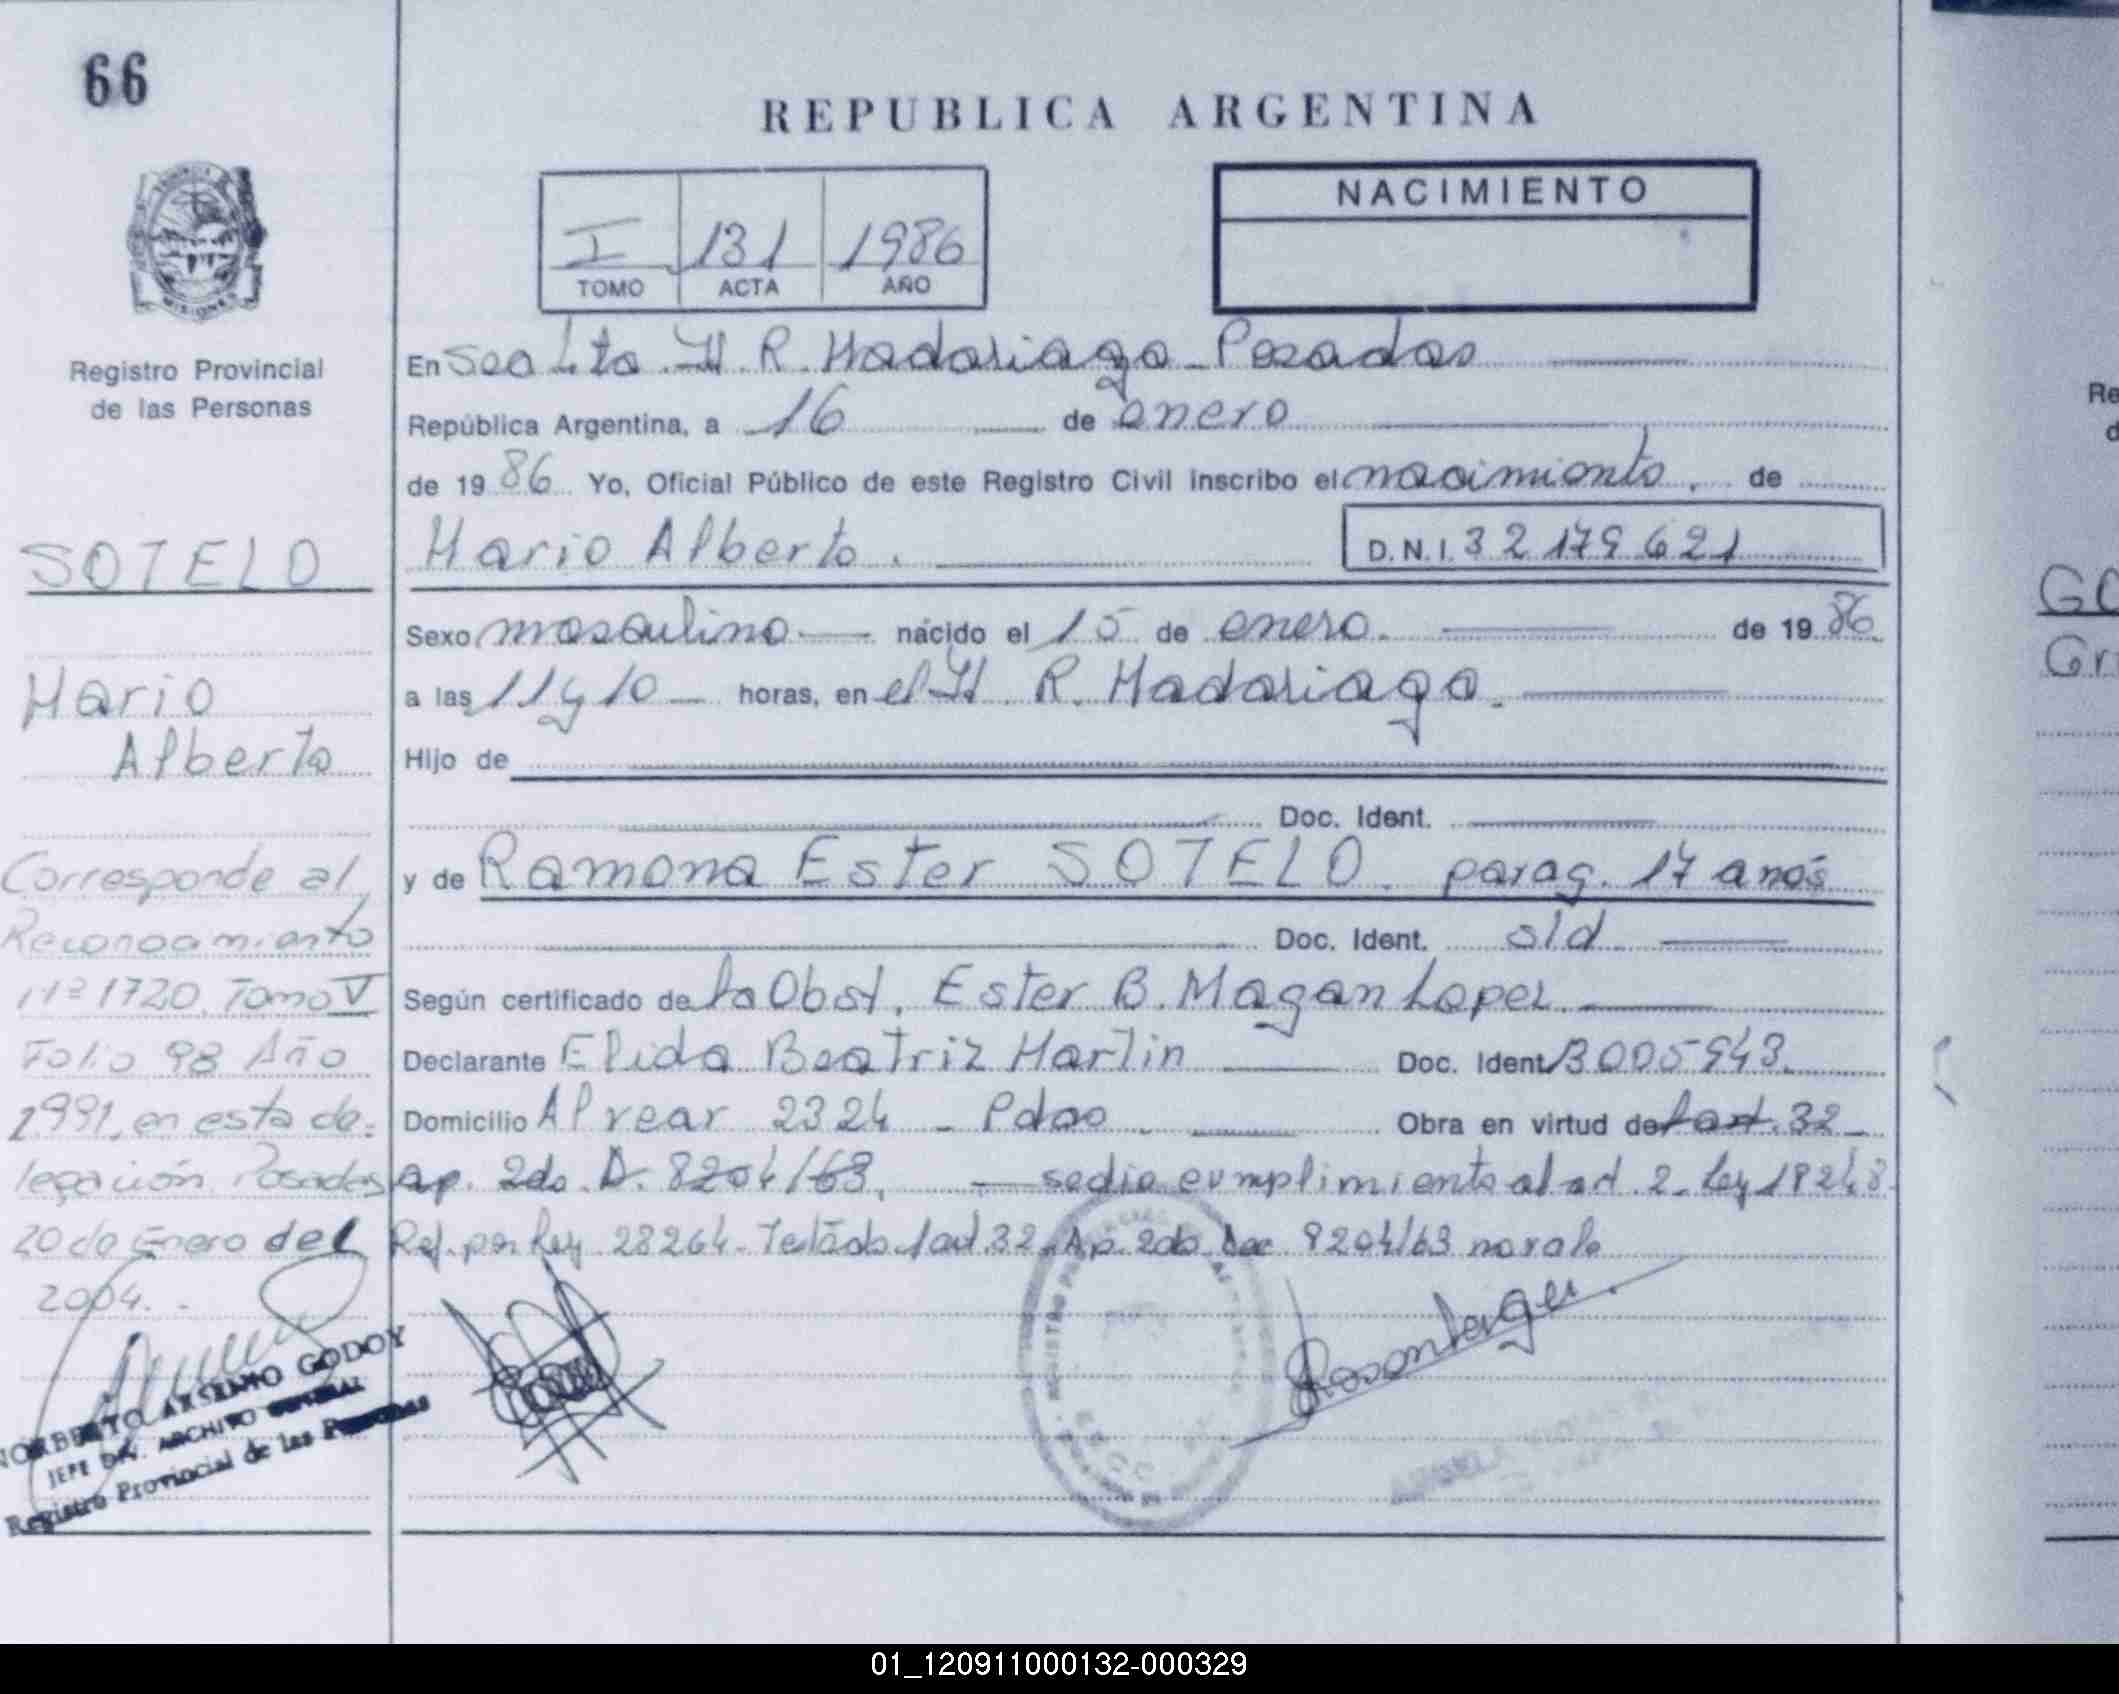 66
REPUBLICA ARGENTINA
I 131 1986
TOMO ACTA AÑO
NACIMIENTO
Registro Provincial
de las Personas
En H. R. Madariaga - Posadas
República Argentina, a 16 de enero
de 19 86 Yo, Oficial Público de este Registro Civil inscribo el nacimiento. de
Mario Alberto. D.N.I. 32 179 621
Sexo masculino nacido el 15 de enero. de 19 86
a las 11 y 10 horas, en el H R. Madariaga.
Hijo de
Doc. Ident.
y de Ramona Ester SOTELO. parag. 17 anós
Doc. Ident. s/d
Según certificado de la Obst. Ester B. Magan Lopez
Declarante Elida Beatriz Martin Doc. Ident 3005943.
Domicilio Alvear 2324 - Pdas Obra en virtud de l art. 32
ap. 2do. D. 8204/63, se dio cumplimiento al art. 2. Ley 18248
Ref. por Ley 23264. Testado l art. 32. Ap. 2do Dec 8204/63 no vale
SOTELO
Mario
Alberto
Corresponde al
Reconocimiento
Nº 1720. Tomo V
Folio 98 Año
1991, en esta de-
legación Posadas
20 de Enero del
2004.
NORBERTO ARSENIO GODOY
JEFE DIV. ARCHIVO GENERAL
Registro Provincial de las Personas
Rosemberger
Re
d
GO
Gr
01_120911000132-000329